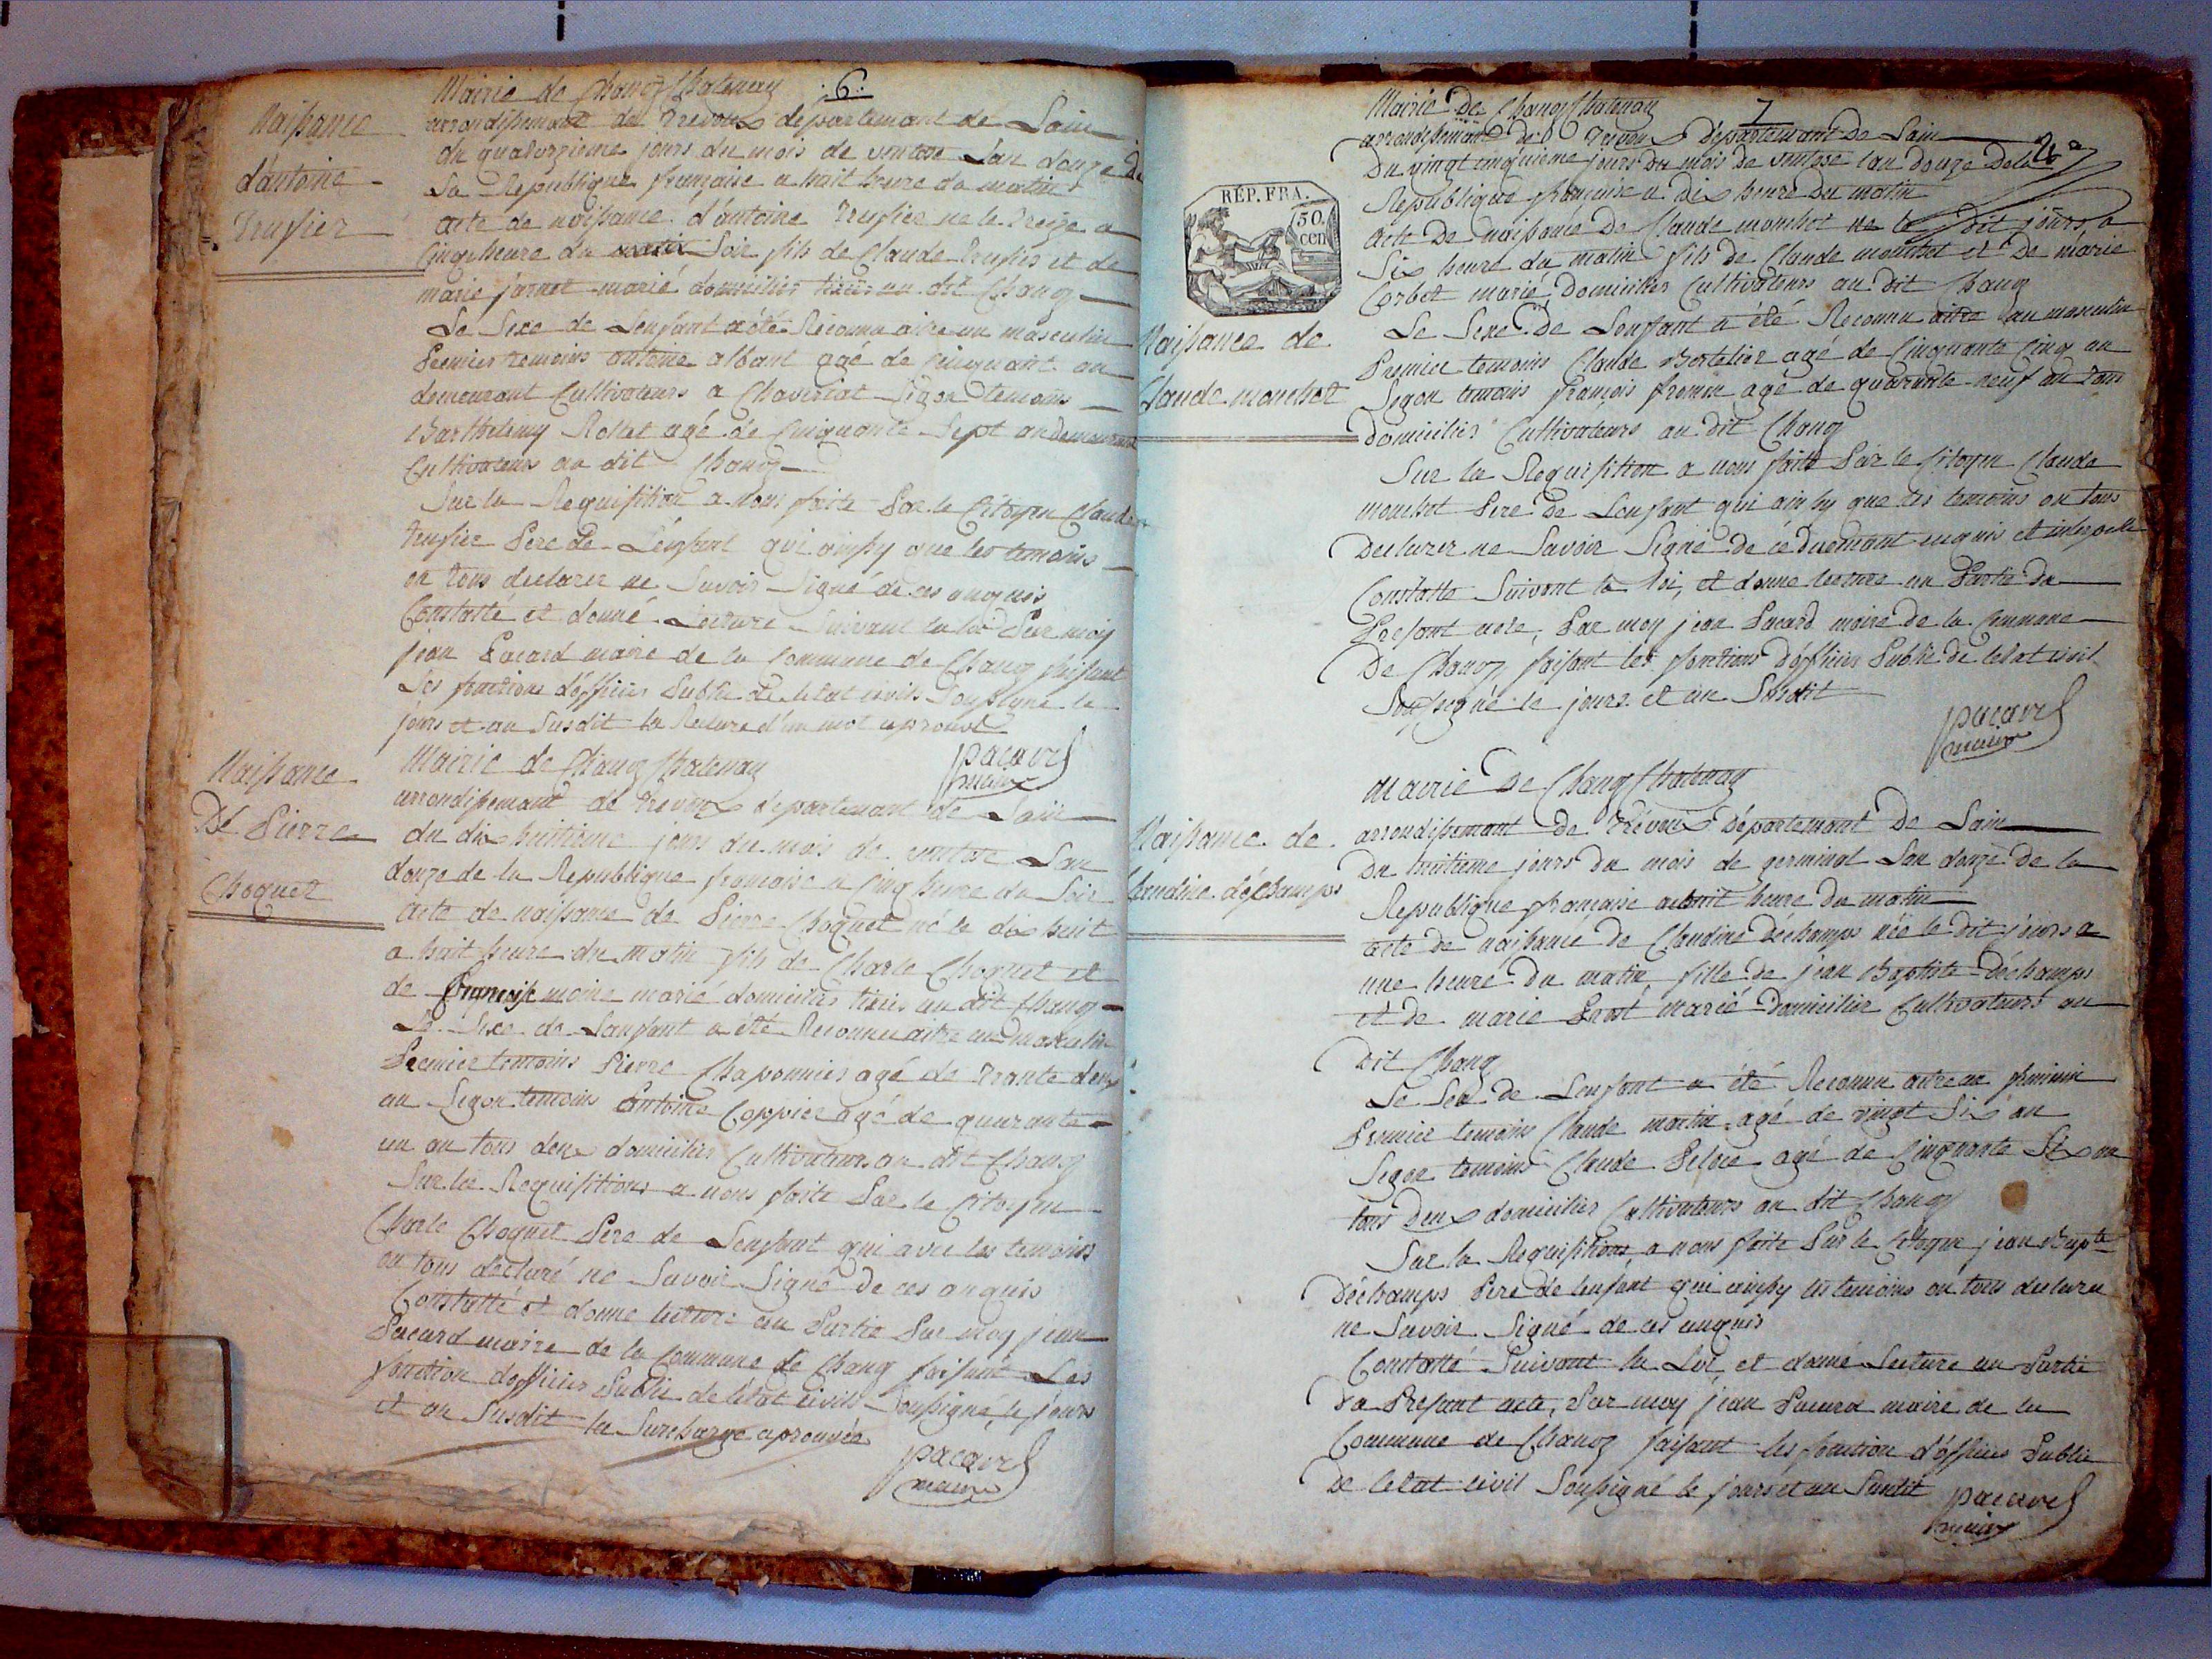 6.
Naissance
d'antoine
Trufier
Mairie de Chanoz Chatenay
arrondissement de Trevoux département de Lain
du quatorzieme jours du mois de vantose Lan douze de
La Republique françoise a huit heure du matin
acte de naissance d'antoine Trufier ne le treize a
Cinq heure du matin Soir fils de Claude Trufier et de
marie jarnet marié domicilies au dit Chanoz
Le Sexe de Lenfant a été Reconnu aitre un masculin
Premier temoins antoine albant agé de Cinquant an
demeurant Cultivateurs a Chaveriat Segon temoins
Barthelemy Rollet agé de Cinquante Sept an demeurant
Cultivateurs au dit Chanoz
Sur la Requisition a nous faite Par le Citoyen Claude
trufier Pere de Lenfant qui ainsy que les temoins
on tous declarer ne Savoir Signé de ces anquis
Constatté et donné Lecture Suivant la loi Par moy
jean Pacard maire de la Commune de Chanoz faisant
Les fonctions d'officier Public de letat civils Soussigné le
jours et an Susdit la Rature d'un mot aprouvé
pacard
maire
Naissance
De Pierre
Choquet
Mairie de Chanoz Chatenay
arrondissemant de Trevoux departemant de Lain
du dix huitieme jours du mois de vantose Lan
douze de la Republique francoise a Cinq heure du Soir
acte de naissance de Pierre Choquet né le dix huit
a huit heure du matin fils de Charle Choquet et
de françoise moine marié domicilies au dit Chanoz
Le Sexe de Lanfant a été Reconnu aitre un masculin
Premier temoins Pierre Chaponnier agé de trante deux
an Segon temoins antoine Coppier agé de quarante
un an tous deux domicilies Cultivateurs au dit Chanoz
Sur les Requisitions a nous faite Par le Citoyen
Charle Choquet Pere de Lenfant qui avec les temoins
on tous declaré ne Savoir Signé de ces anquis
Constatté et donne lecture au Partie Par moy jean
Pacard maire de la Commune de Chanoz faisant Les
fonction d'officier Public de l'état civils Soussigné le jours
et an Susdit la Surcharge aprouvée
pacard
maire
7
RÉP. FRA.
50
cen
Naissance de
Claude monchot
Mairie De Chanoz Chatenay
arrondissemant de Trevoux Departemant De Lain
Du vingt cinquieme jours Du mois de vantose lan douze De la
Republique françoise a Dix heure Du matin
acte De naissance De Claude monchot ne le dit jours, a
Six heure du matin fils de Claude monchot et De marie
Corbet marié, Domicilies Cultivateurs au dit Chanoz
Le Sexe De Lenfant a été Reconnu aitre un masculin
Premier temoins Claude Bertelier agé de Cinquante Cinq an
Segon temoins françois fromen agé de quarante neuf an tous
Domicilies Cultivateurs au dit Chanoz
Sur la Requisition a nous faite Par le Citoyen Claude
monchot Pere De Lenfant qui ainsy que les temoins on tous
Declarer ne Savoir Signé de ce duemant enquis et interpelle
Constatte Suivant la loi, et donne lecture au Partie du
Presant acte, Par moy jean Pacard maire de la Commune
De Chanoz faisant les fonctions D'officier Public de letat civil
Soussigné le jours et an Susdit
pacard
maire
Naissance de
Claudine déchamps
Mairie De Chanoz Chatenay
arrondissemant de Trévoux Département De Lain
Du huitieme jours Du mois de germinal Lan douze De la
Republique françoise a huit heure Du matin
acte De naissance De Claudine Dechamps née le Dit jours a
une heure Du matin fille De jean Baptiste Déchamps
et De marie Prost marié Domicilier Cultivateurs au
Dit Chanoz
Le Sexe De Lenfant a été Reconnu aitre un feminin
Premier temoins Claude martin agé de vingt Six an
Segon temoins Claude Pelvie agé de Cinquante Six an
tous Deux domicilies Cultivateurs au dit Chanoz
Sur la Requisitions a nous faite Par le Citoyen jean Bapte
Déchamps Pere de lenfant qui ainsy les temoins on tous declaru
ne Savoir Signé de ces anquis
Constatté Suivant la Loi et donné Lecture au Partie
Du Presant acte, Par moy jean Pacard maire de la
Commune de Chanoz faisant les fonction d'officier Public
De letat civil Soussigné le jours et an Susdit
pacard
maire